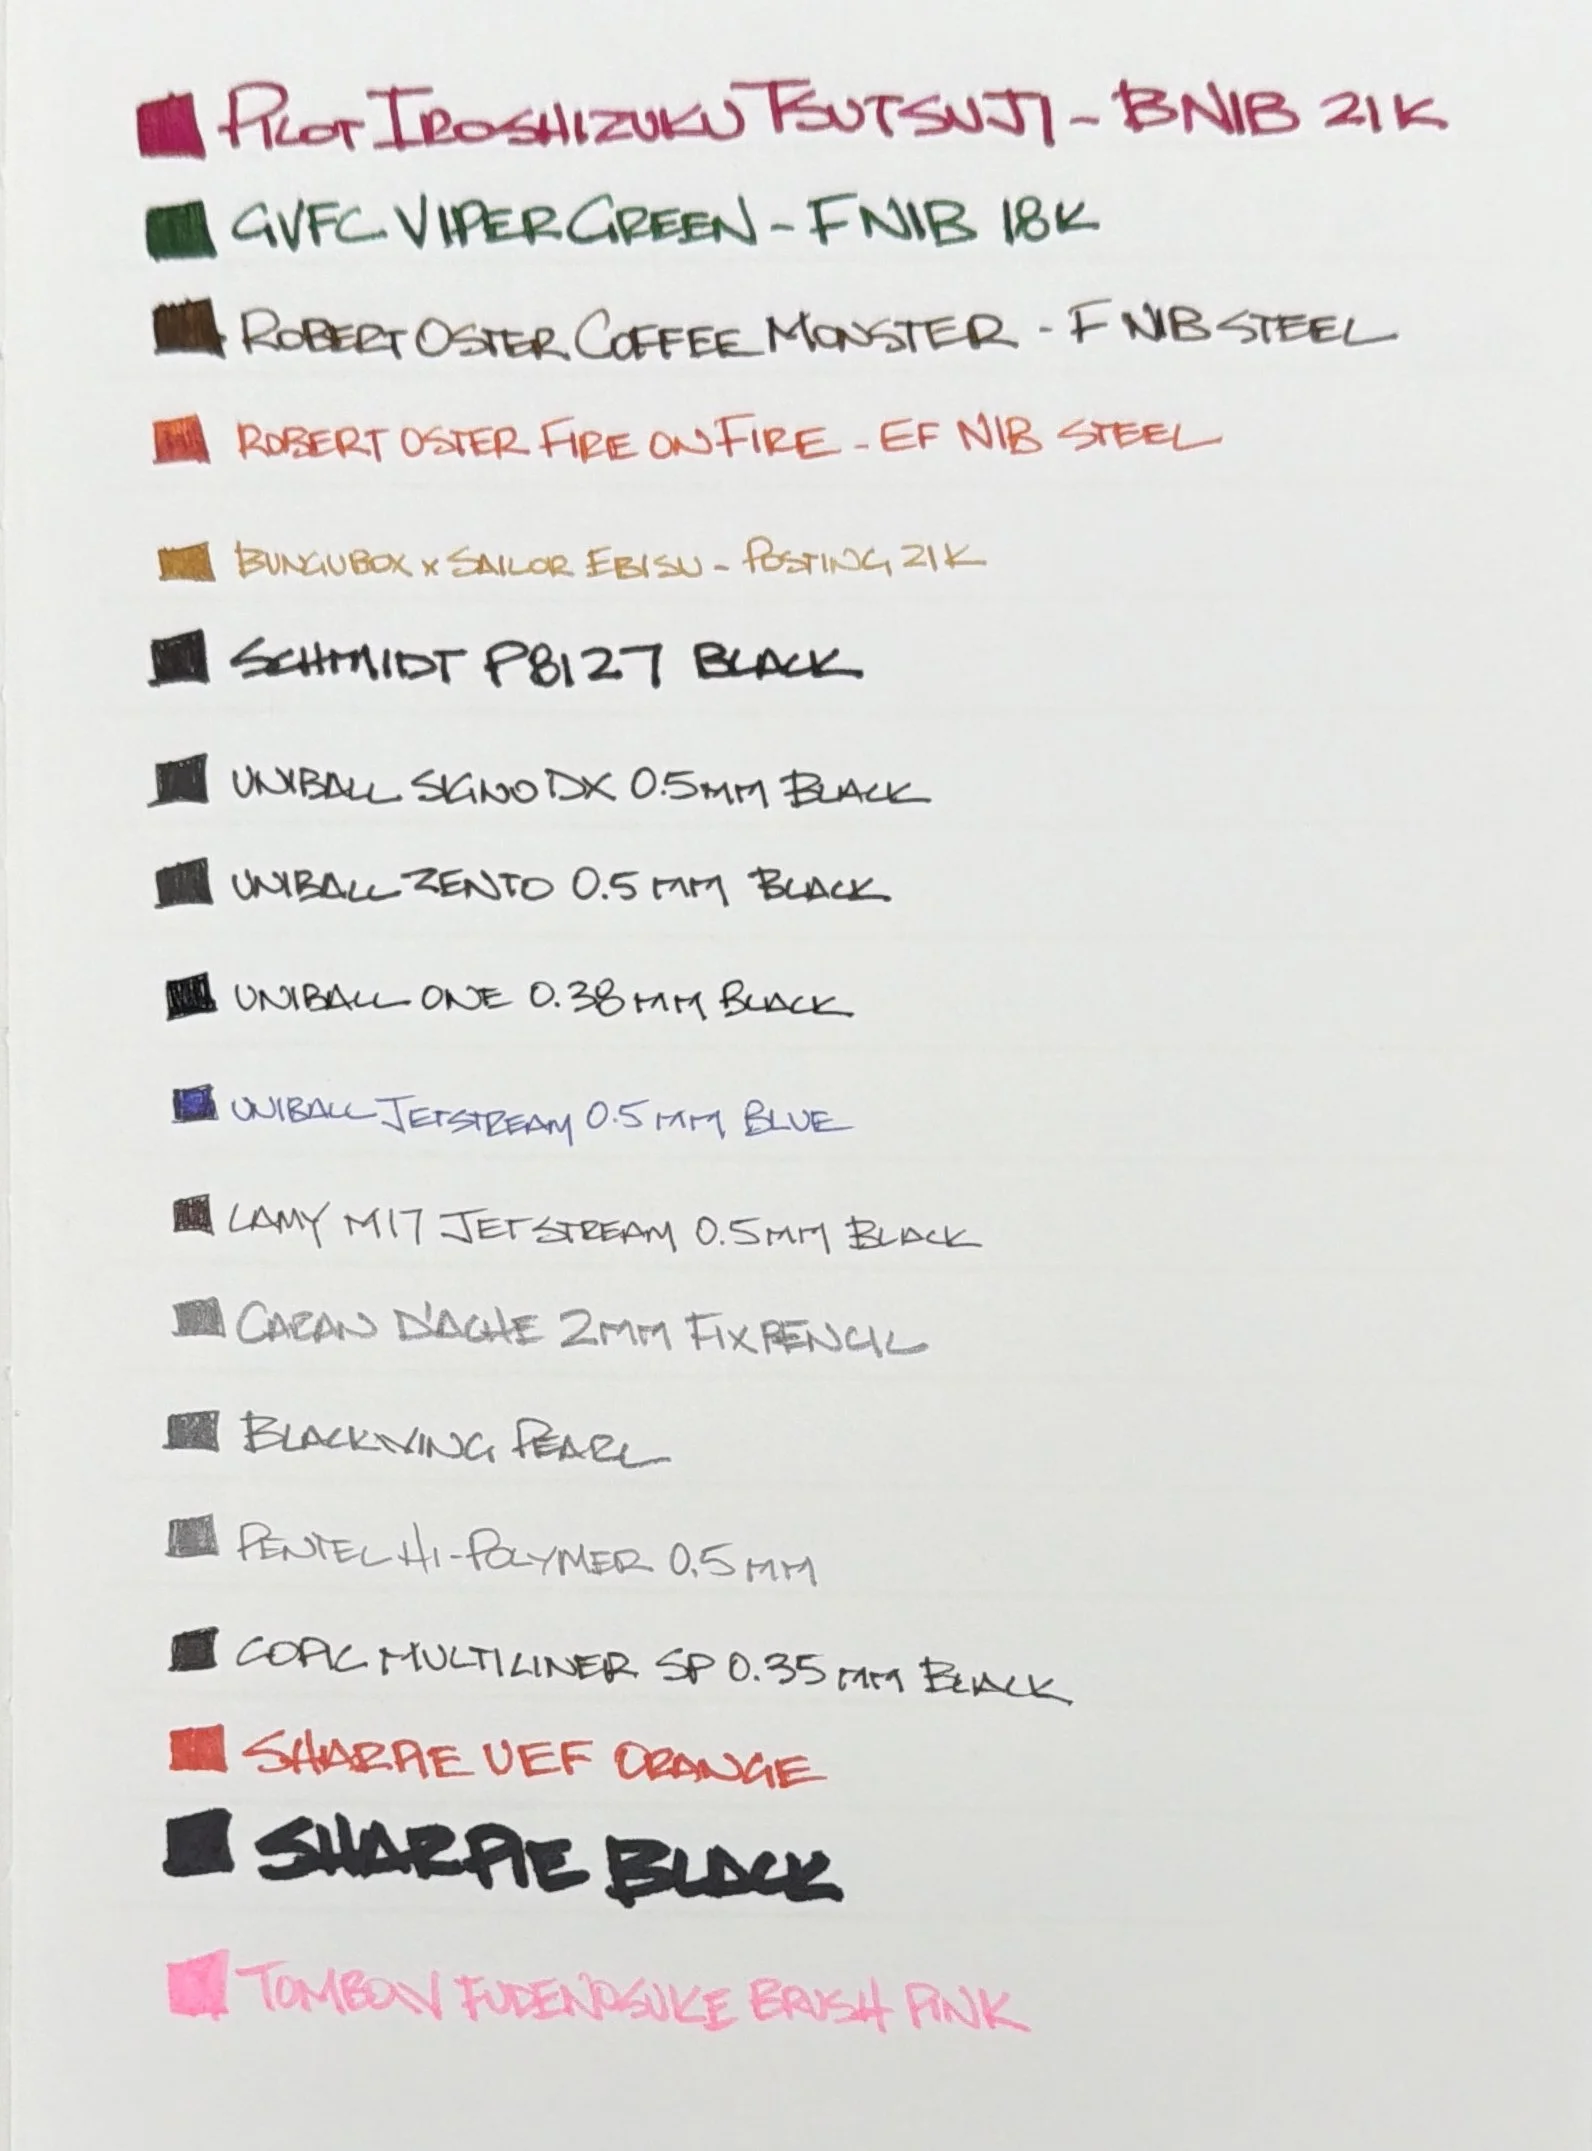 PILOT IROSHIZUKU TSUTSUJI - B NIB 21K
GVFC VIPER GREEN - F NIB 18K
ROBERT OSTER COFFEE MONSTER - F NIB STEEL
ROBERT OSTER FIRE ON FIRE - EF NIB STEEL
BUNGUBOX x SAILOR EBISU - POSTING 21K
SCHMIDT P8127 BLACK
UNIBALL SIGNO DX 0.5MM BLACK
UNIBALL ZENTO 0.5MM BLACK
UNIBALL ONE 0.38MM BLACK
UNIBALL JETSTREAM 0.5MM BLUE
LAMY M17 JETSTREAM 0.5MM BLACK
CARAN D'ACHE 2MM FIXPENCIL
BLACKWING PEARL
PENTEL HI-POLYMER 0.5MM
COPIC MULTILINER SP 0.35MM BLACK
SHARPIE UEF ORANGE
SHARPIE BLACK
TOMBOW FUDENOSUKE BRUSH PINK